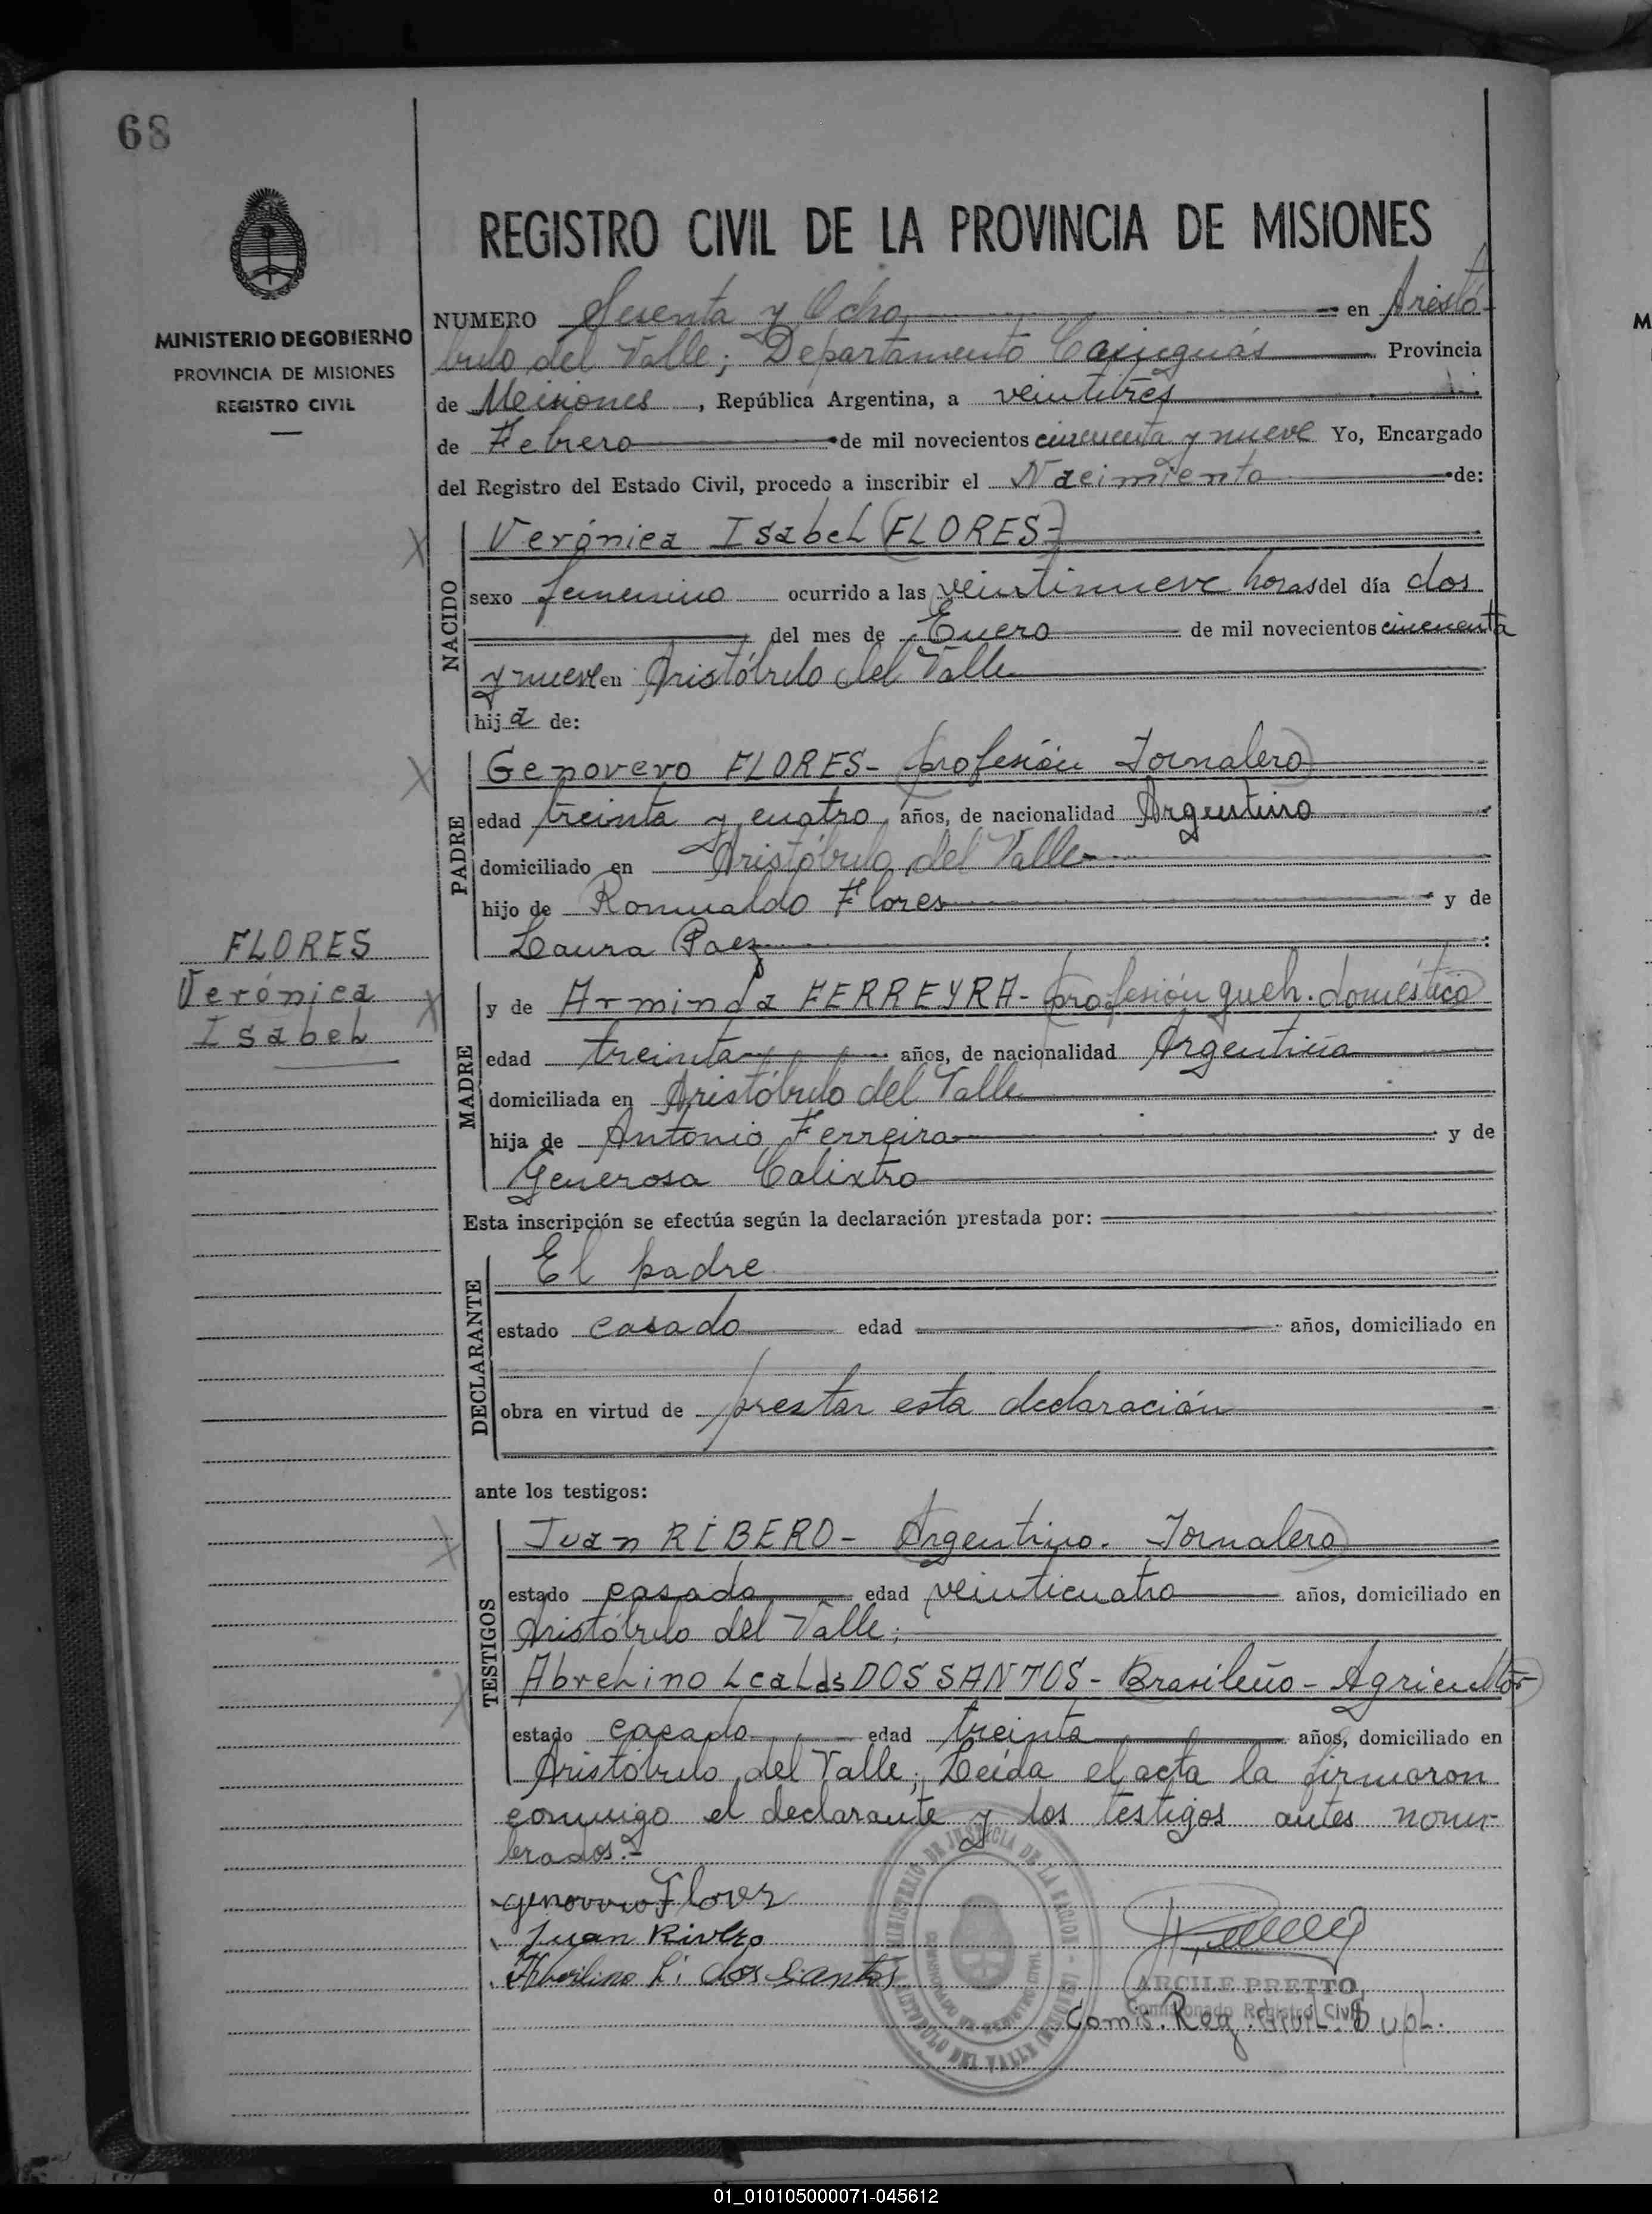 68
MINISTERIO DE GOBIERNO
PROVINCIA DE MISIONES
REGISTRO CIVIL
REGISTRO CIVIL DE LA PROVINCIA DE MISIONES
NUMERO Sesenta y Ocho en Aristó-
bulo del Valle; Departamento Cainguás Provincia
de Misiones, República Argentina, a veintitrés
de Febrero de mil novecientos cincuenta y nueve Yo, Encargado
del Registro del Estado Civil, procedo a inscribir el Nacimiento de:
NACIDO
Verónica Isabel (FLORES-)
sexo femenino ocurrido a las veintinueve horas del día dos
del mes de Enero de mil novecientos cincuenta
y nueve en Aristóbulo del Valle
hija de:
PADRE
Genovevo FLORES- (profesión Jornalero)
edad treinta y cuatro años, de nacionalidad Argentino
domiciliado en Aristóbulo del Valle
hijo de Romualdo Flores y de
Laura Paez
FLORES
Verónica
Isabel
MADRE
y de Arminda FERREYRA- (profesión queh. doméstico)
edad treinta años, de nacionalidad Argentina
domiciliada en Aristóbulo del Valle
hija de Antonio Ferreira y de
Generosa Calixtro
Esta inscripción se efectúa según la declaración prestada por:
DECLARANTE
El padre
estado casado edad años, domiciliado en
obra en virtud de prestar esta declaración
ante los testigos:
TESTIGOS
Juan RIBERO- (Argentino. Jornalero)
estado casado edad veinticuatro años, domiciliado en
Aristóbulo del Valle;
Abrelino DOS SANTOS - Brasileño - Agricultor
estado casado edad treinta años, domiciliado en
Aristóbulo del Valle; Leída el acta la firmaron
conmigo el declarante y los testigos antes nom-
brados.-
Genovevo Flores
Juan Rivero
dos Santos
MINISTERIO DE JUSTICIA DE LA NACION
ARISTOBULO DEL VALLE (MISIONES)
ARCILE PRETTO
Comisionado Registro Civil
Comis. Reg. Civil Supl.
01_010105000071-045612